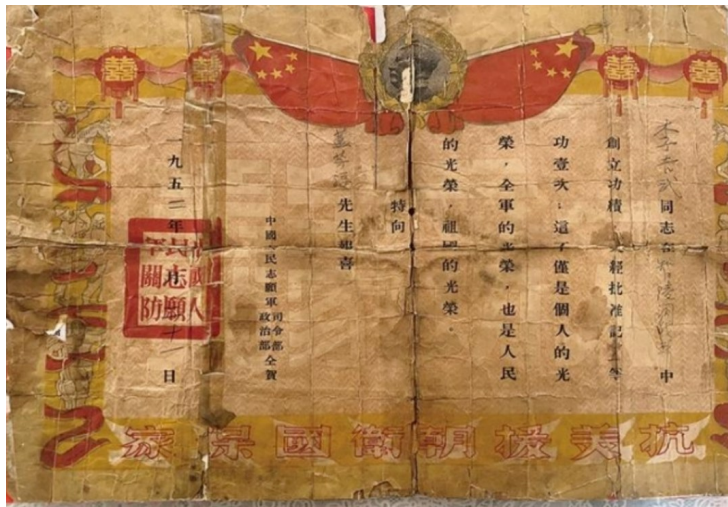 囍 囍 囍 囍
同志在 中
創立功績 經批准記 等
功壹次;這不僅是個人的光
榮,全軍的光榮,也是人民
的光榮,祖國的光榮。
特向
先生報喜
中國人民志願軍
司令部
政治部
仝賀
九五二年 月 十 日
人
民志願
軍關防
抗美援朝衛國保家